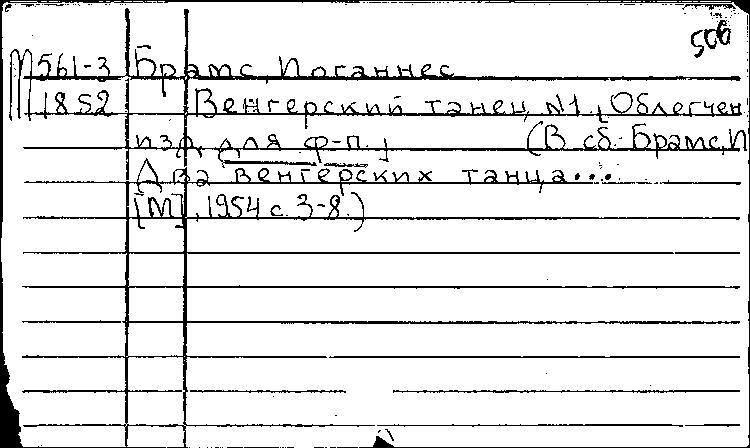 506
М 561-3 Брамс, Иоганнес
1852 Венгерский танец N1. [Облегчен
изд. для ф-п.] (В сб: Брамс, И
Два венгерских танца...
[М], 1954 с. 3-8.)